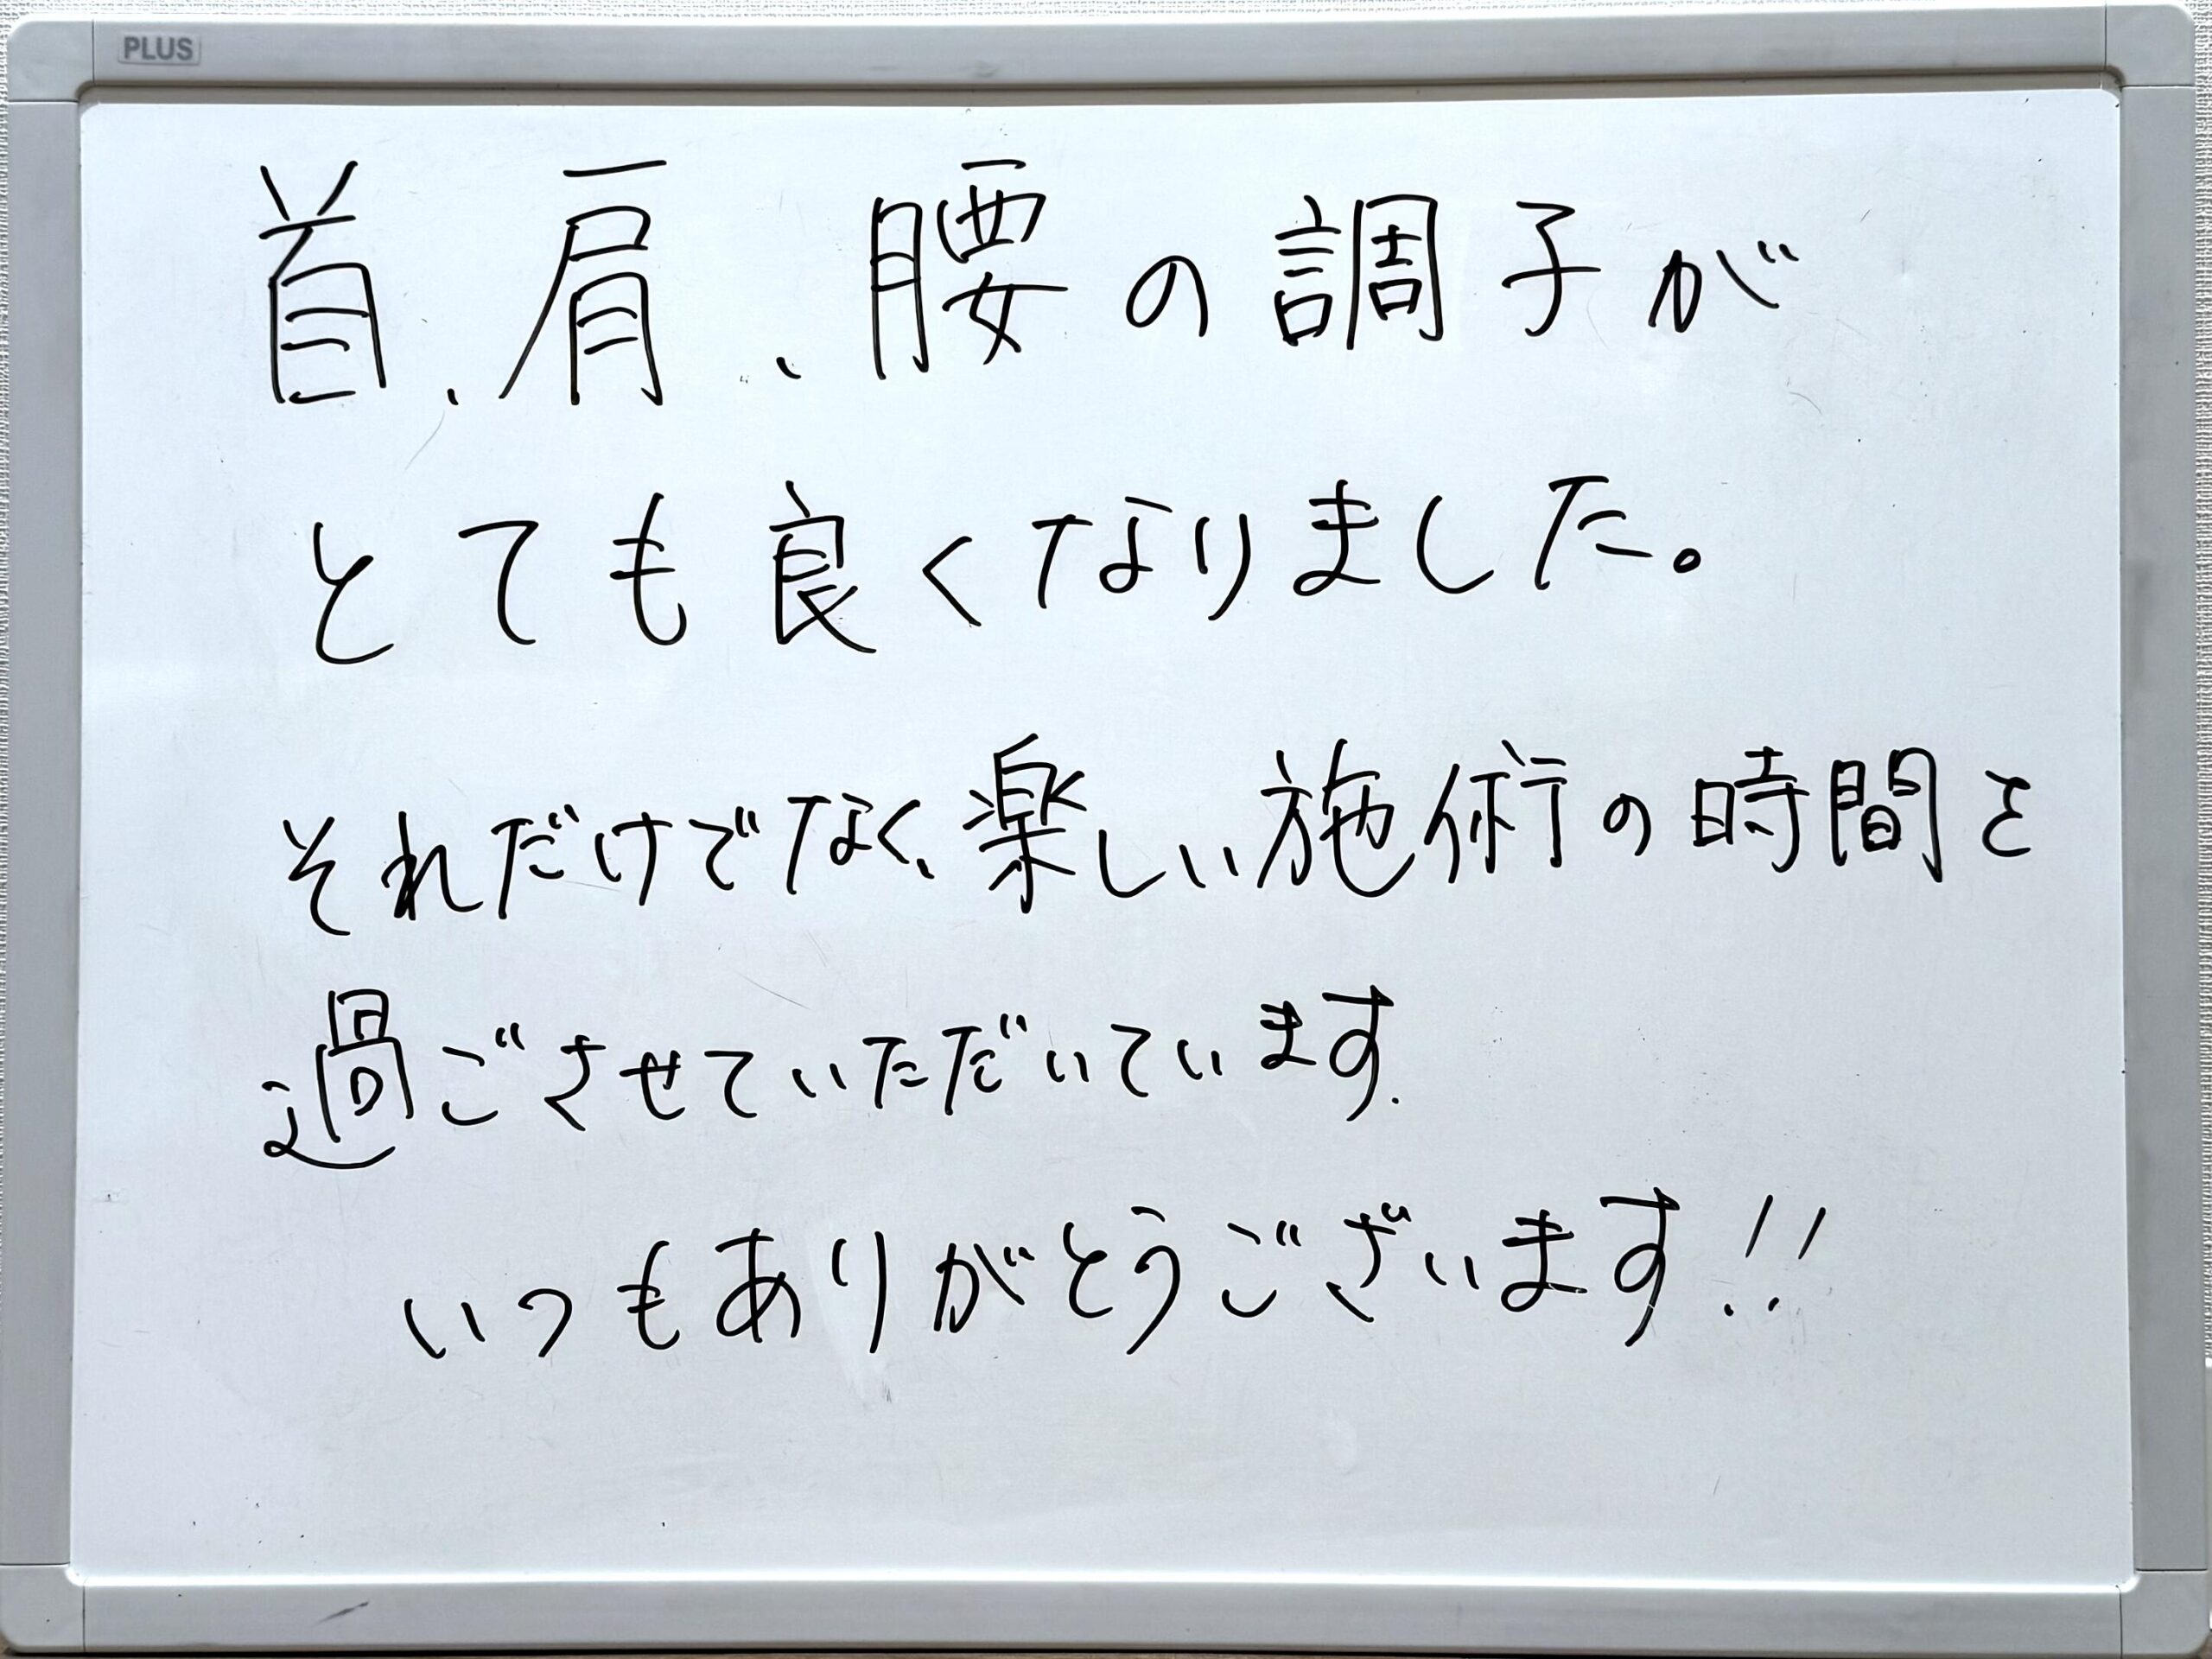 PLUS
首、肩、腰の調子が
とても良くなりました。
それだけでなく、楽しい施術の時間を
過ごさせていただいています.
いつもありがとうございます!!